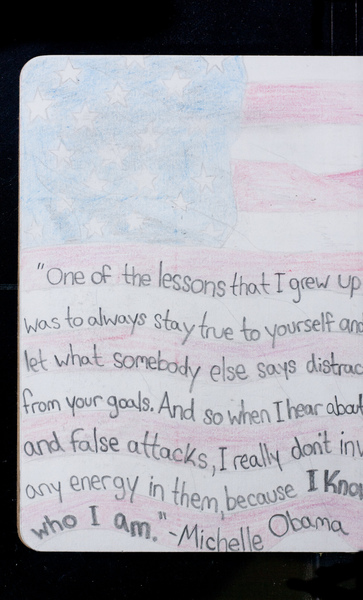 "One of the lessons that I grew up
was to always stay true to yourself and
let what somebody else says distrac
from your goals. And so when I hear about
and false attacks, I really don't inv
any energy in them, because I Know
who I am." -Michelle Obama